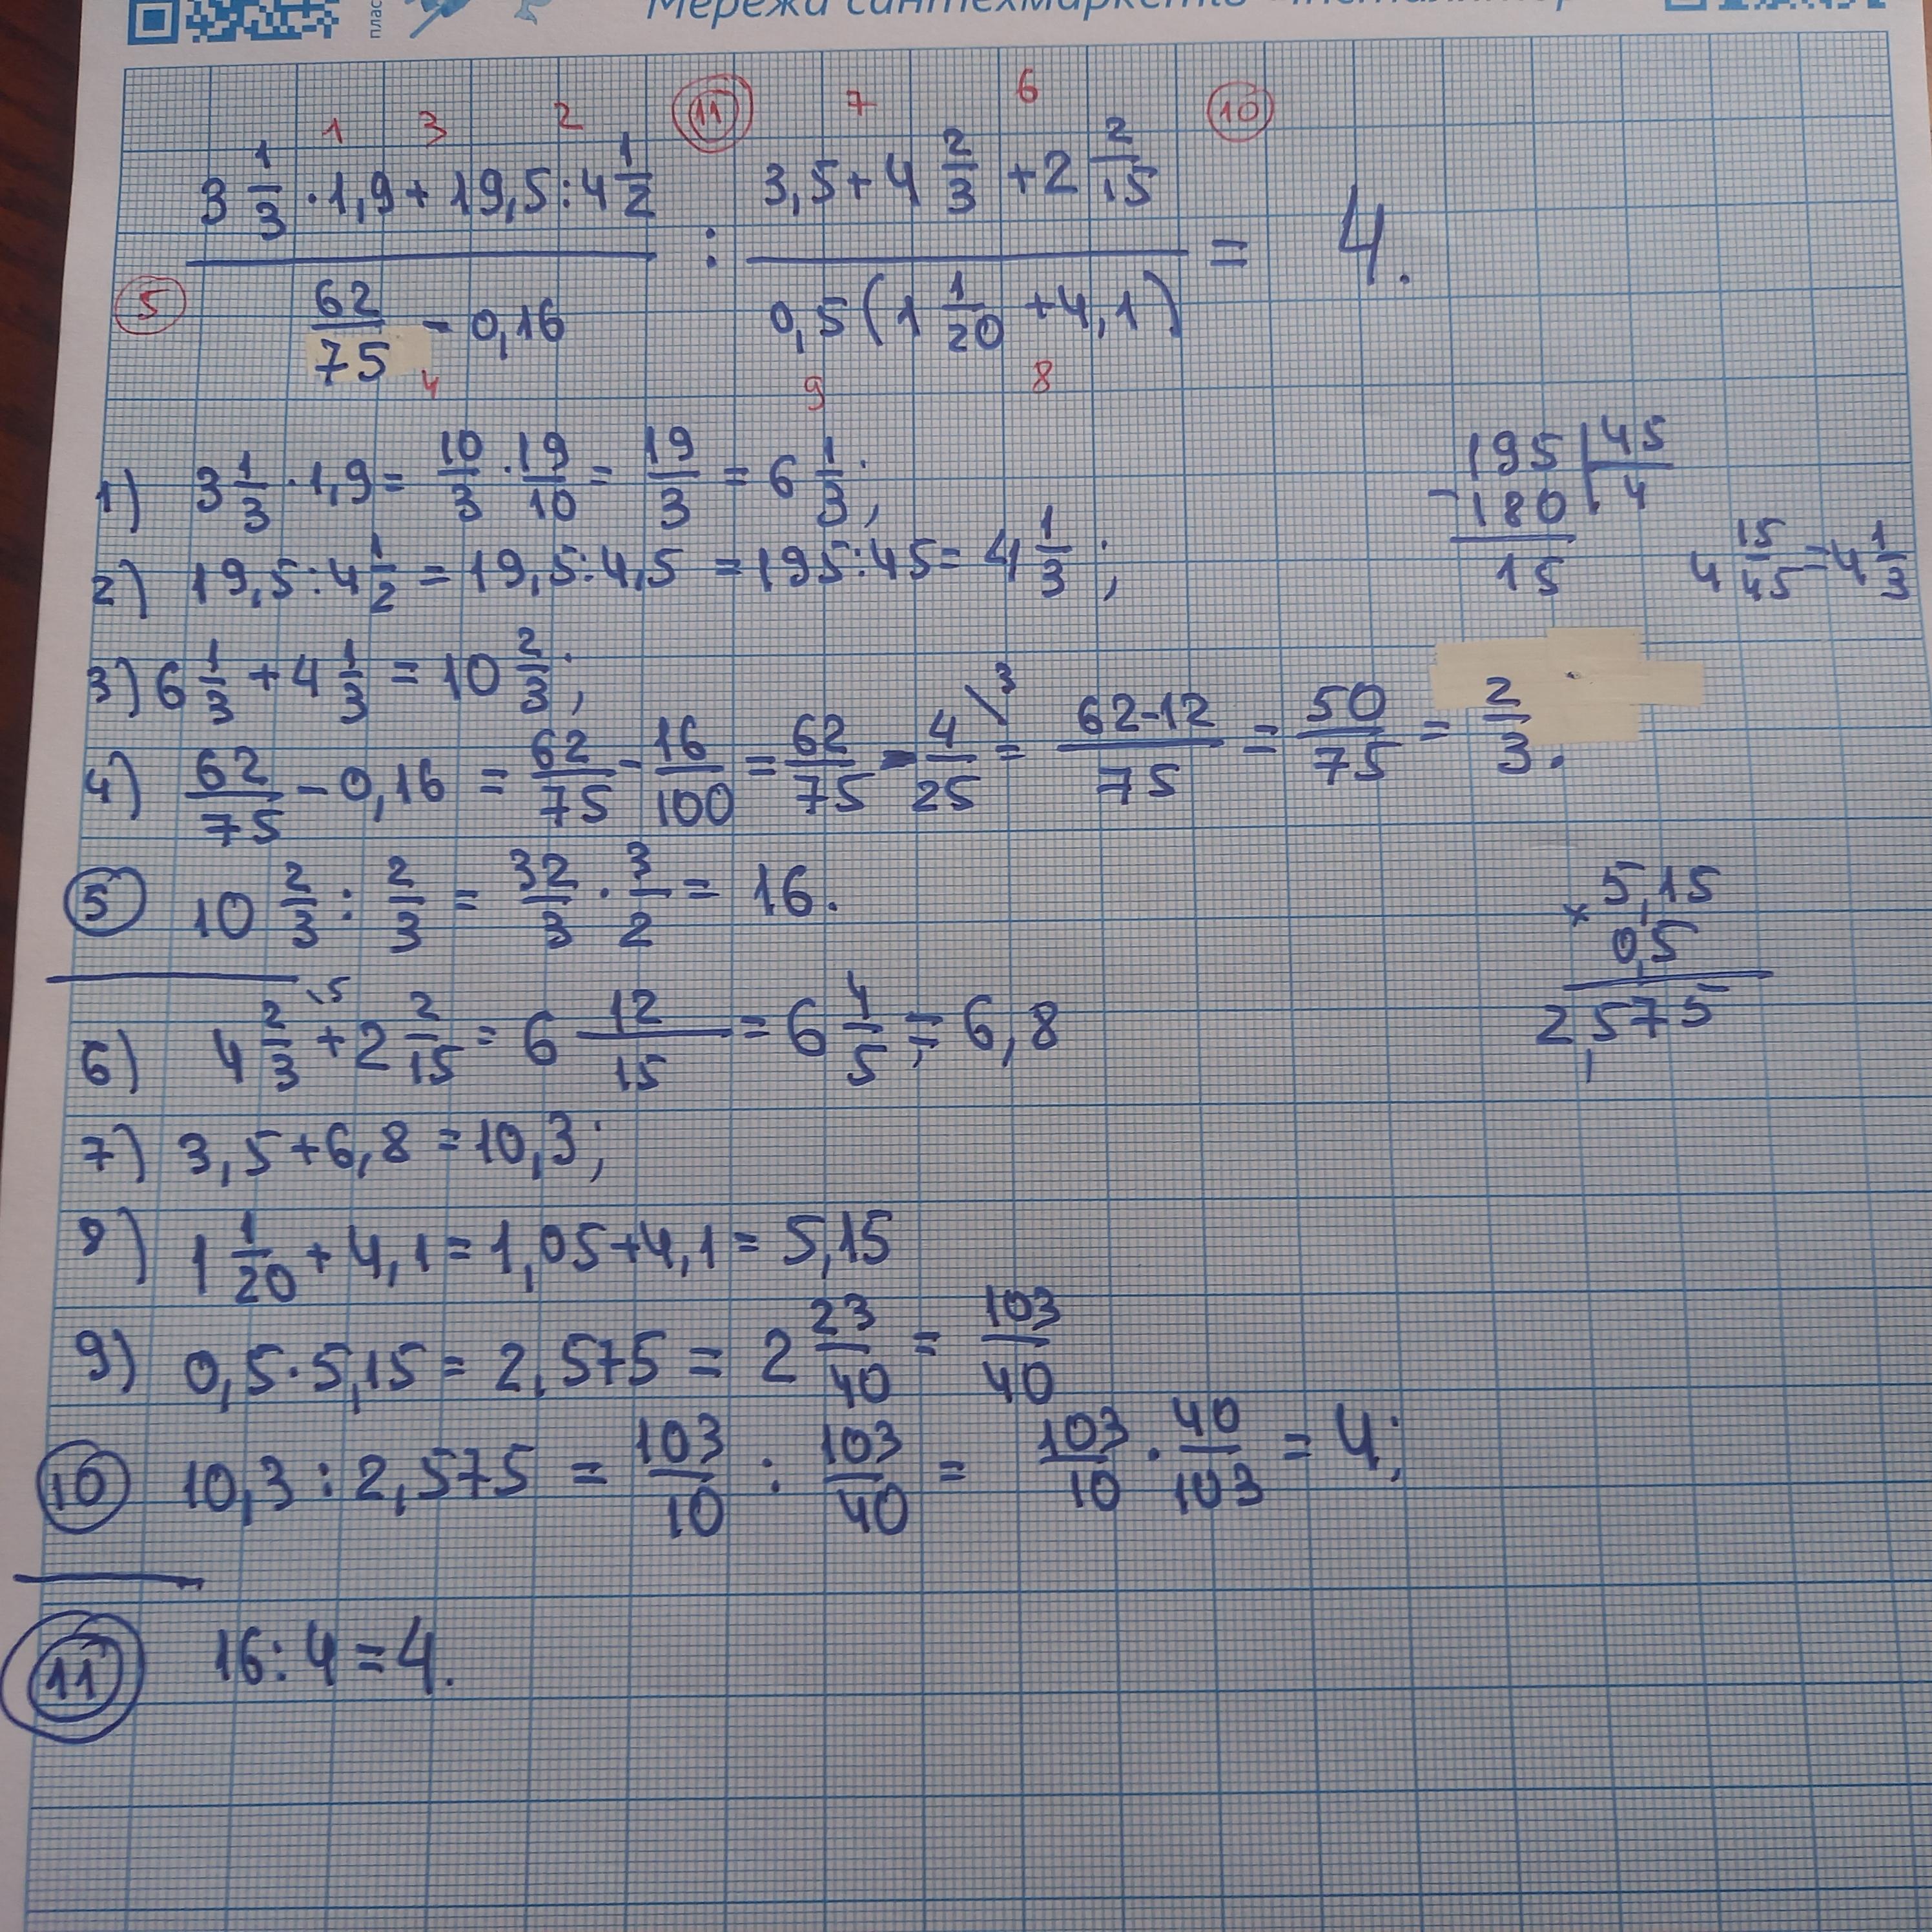 Мережа сантехмаркетів
1 3 2 11 7 6 10
(3 1/3 · 1,9 + 19,5 : 4 1/2) / (62/75 - 0,16) : (3,5 + 4 2/3 + 2 2/15) / (0,5 (1 1/20 + 4,1)) = 4.
5 4 9 8
1) 3 1/3 · 1,9 = 10/3 · 19/10 = 19/3 = 6 1/3;
195 | 45
- 180 | 4
15
4 15/45 = 4 1/3
2) 19,5 : 4 1/2 = 19,5 : 4,5 = 195 : 45 = 4 1/3;
3) 6 1/3 + 4 1/3 = 10 2/3;
4) 62/75 - 0,16 = 62/75 - 16/100 = 62/75 - 4/25 \3 = 62-12/75 = 50/75 = 2/3.
5 10 2/3 : 2/3 = 32/3 · 3/2 = 16.
5,15
× 0,5
2,575
6) 4 2/3 \5 + 2 2/15 = 6 12/15 = 6 4/5 = 6,8 ;
7) 3,5 + 6,8 = 10,3;
8) 1 1/20 + 4,1 = 1,05 + 4,1 = 5,15
9) 0,5 · 5,15 = 2,575 = 2 23/40 = 103/40
10 10,3 : 2,575 = 103/10 : 103/40 = 103/10 · 40/103 = 4;
11 16 : 4 = 4.